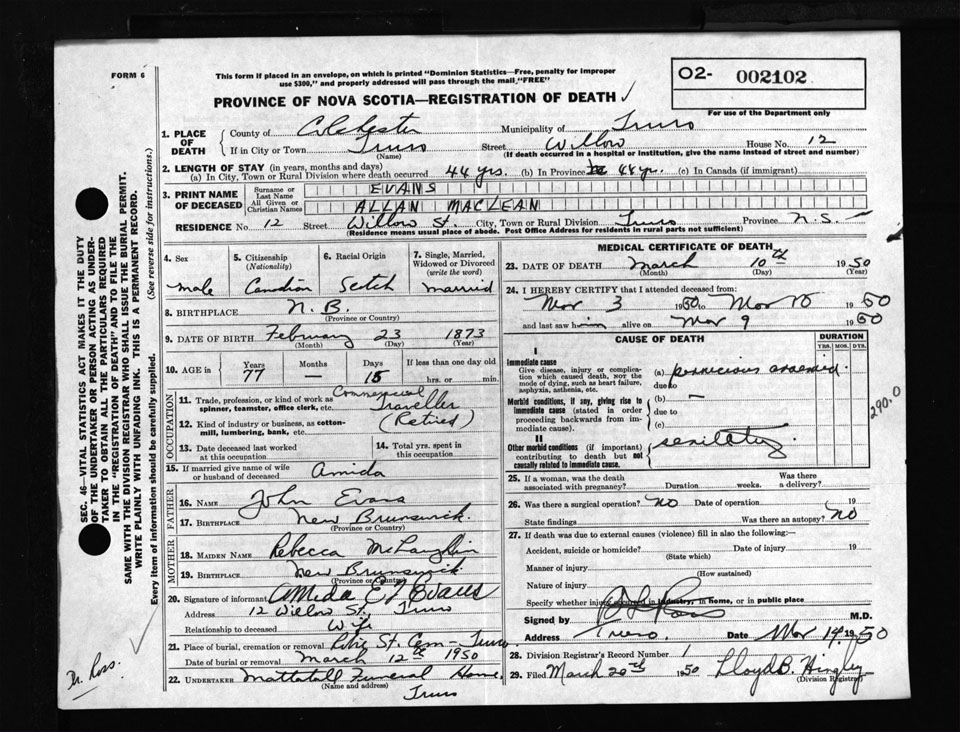 FORM 6
This form if placed in an envelope, on which is printed "Dominion Statistics—Free, penalty for improper
use $300," and properly addressed will pass through the mail "FREE"
O2- 002102
For use of the Department only
PROVINCE OF NOVA SCOTIA—REGISTRATION OF DEATH ✓
1. PLACE OF DEATH
County of Colchester Municipality of Truro
If in City or Town Truro Street Willow House No. 12
(Name) (If death occurred in a hospital or institution, give the name instead of street and number)
2. LENGTH OF STAY (in years, months and days)
(a) In City, Town or Rural Division where death occurred 44 yrs. (b) In Province 44 yrs. (c) In Canada (if immigrant)
3. PRINT NAME OF DECEASED
Surname or Last Name EVANS
All Given or Christian Names ALLAN MACLEAN
RESIDENCE No. 12 Street Willow St. City, Town or Rural Division Truro Province N.S.
(Residence means usual place of abode. Post Office Address for residents in rural parts not sufficient)
4. Sex
male
5. Citizenship (Nationality)
Canadian
6. Racial Origin
Scotch
7. Single, Married, Widowed or Divorced (write the word)
married
8. BIRTHPLACE N.B.
(Province or Country)
9. DATE OF BIRTH February 23 1873
(Month) (Day) (Year)
10. AGE in Years Months Days If less than one day old
77 — 15 hrs. or min.
OCCUPATION
11. Trade, profession, or kind of work as spinner, teamster, office clerk, etc. Commercial Traveller
12. Kind of industry or business, as cotton-mill, lumbering, bank, etc. (Retired)
13. Date deceased last worked at this occupation
14. Total yrs. spent in this occupation
15. If married give name of wife or husband of deceased Amida
FATHER
16. NAME John Evans
17. BIRTHPLACE New Brunswick.
(Province or Country)
MOTHER
18. MAIDEN NAME Rebecca McLaughlin
19. BIRTHPLACE New Brunswick
(Province or Country)
20. Signature of informant Amida E J Evans
Address 12 Willow St, Truro
Relationship to deceased Wife
21. Place of burial, cremation or removal St. Cem — Truro
Date of burial or removal March 12th 1950
22. UNDERTAKER Mattatall Funeral Home,
(Name and address) Truro
MEDICAL CERTIFICATE OF DEATH
23. DATE OF DEATH March 10th 1950
(Month) (Day) (Year)
24. I HEREBY CERTIFY that I attended deceased from:
Mar 3 1950 to Mar 10 1950
and last saw him alive on Mar 9 1950
CAUSE OF DEATH
DURATION
YRS. MOS. DYS.
I
Immediate cause
Give disease, injury or complication which caused death, not the mode of dying, such as heart failure, asphyxia, asthenia, etc.
(a) pernicious anaemia.
due to
Morbid conditions, if any, giving rise to immediate cause (stated in order proceeding backwards from immediate cause).
(b) —
due to
(c)
II
Other morbid conditions (if important) contributing to death but not causally related to immediate cause.
senility.
290.0
25. If a woman, was the death associated with pregnancy? Duration weeks. Was there a delivery?
26. Was there a surgical operation? No Date of operation 19
State findings Was there an autopsy? No
27. If death was due to external causes (violence) fill in also the following:—
Accident, suicide or homicide? Date of injury 19
(State which)
Manner of injury
(How sustained)
Nature of injury
Specify whether injury occurred in industry, in home, or in public place
Signed by Ross M.D.
Address Truro. Date Mar 14 1950
28. Division Registrar's Record Number 1
29. Filed March 20th 1950 Lloyd B. Hingley
(Division Registrar)
SEC. 46—VITAL STATISTICS ACT MAKES IT THE DUTY
OF THE UNDERTAKER OR PERSON ACTING AS UNDER-
TAKER TO OBTAIN ALL THE PARTICULARS REQUIRED
IN THE "REGISTRATION OF DEATH" AND TO FILE THE
SAME WITH THE DIVISION REGISTRAR WHO SHALL ISSUE THE BURIAL PERMIT.
WRITE PLAINLY WITH UNFADING INK. THIS IS A PERMANENT RECORD.
Every item of information should be carefully supplied. (See reverse side for instructions.)
Dr. Ross.